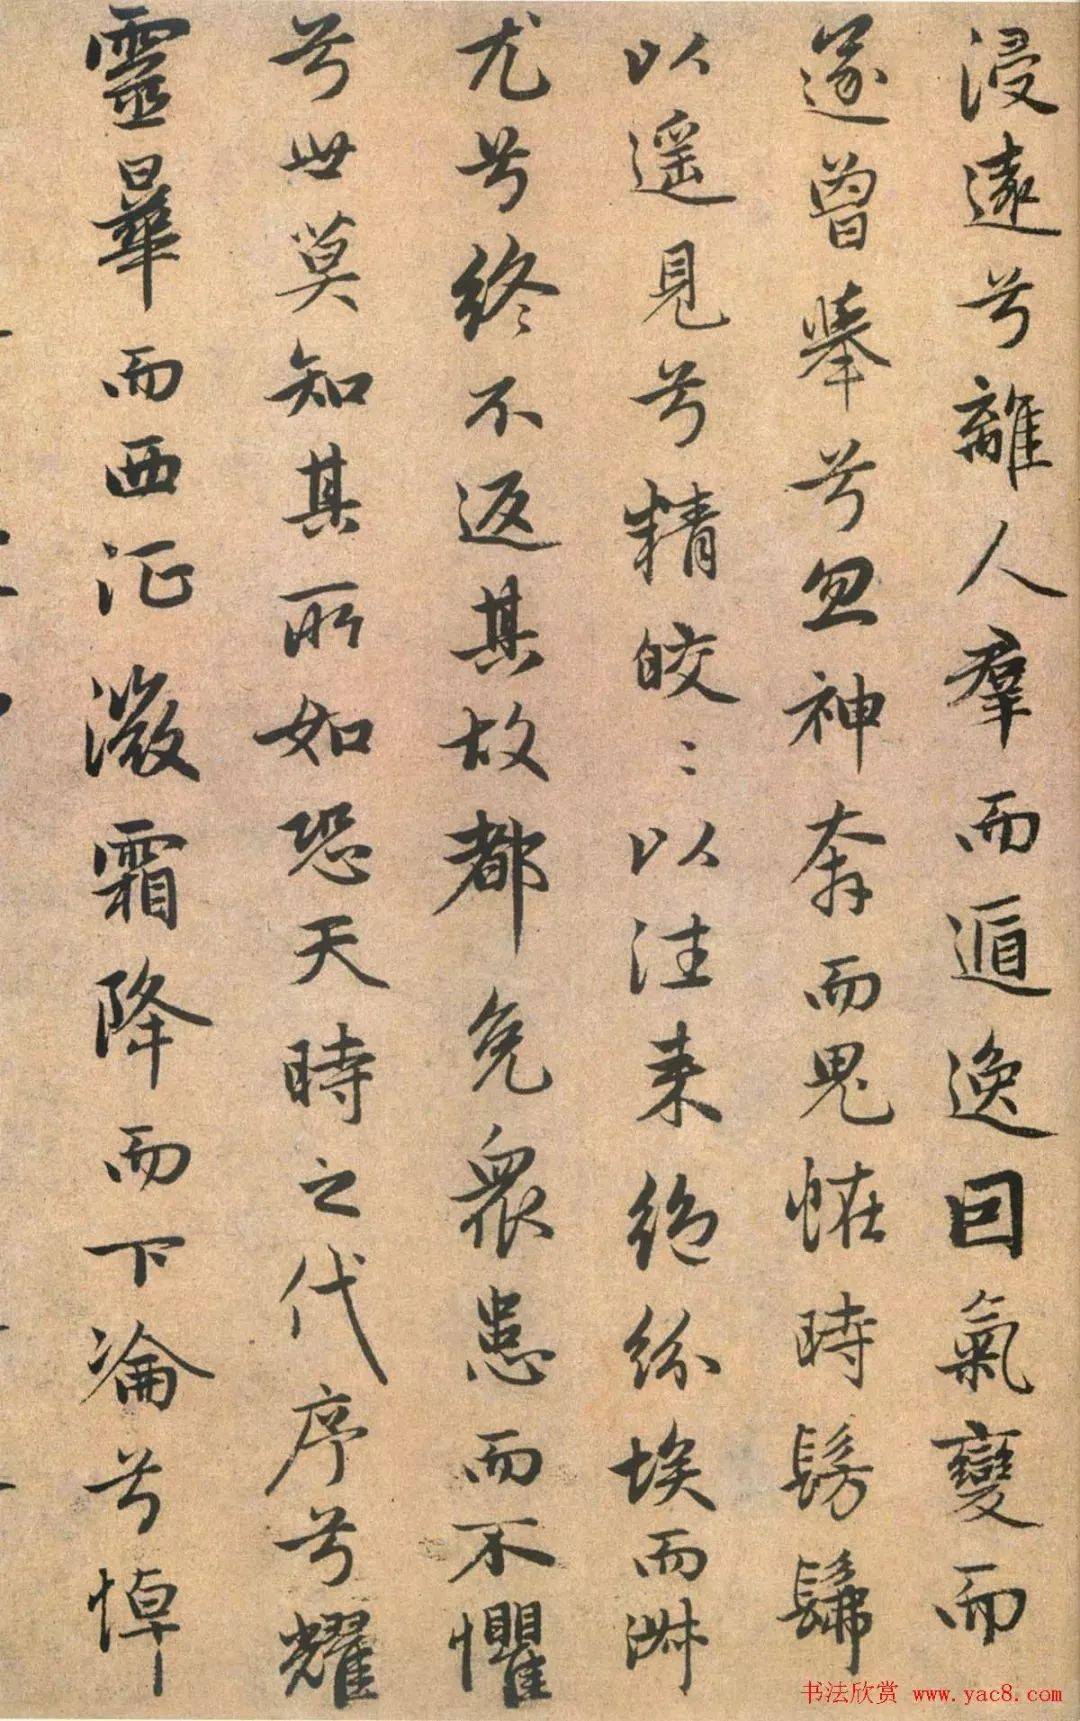 浸遠兮離人羣而遁逸因氣變而
遂曾舉兮忽神奔而鬼恠時髣髴
以遥見兮精皎〻以往来絶紛埃而淑
尤兮終不返其故都免衆患而不懼
兮世莫知其所如恐天時之代序兮耀
靈曅而西征微霜降而下淪兮悼
书法欣赏 www.yac8.com